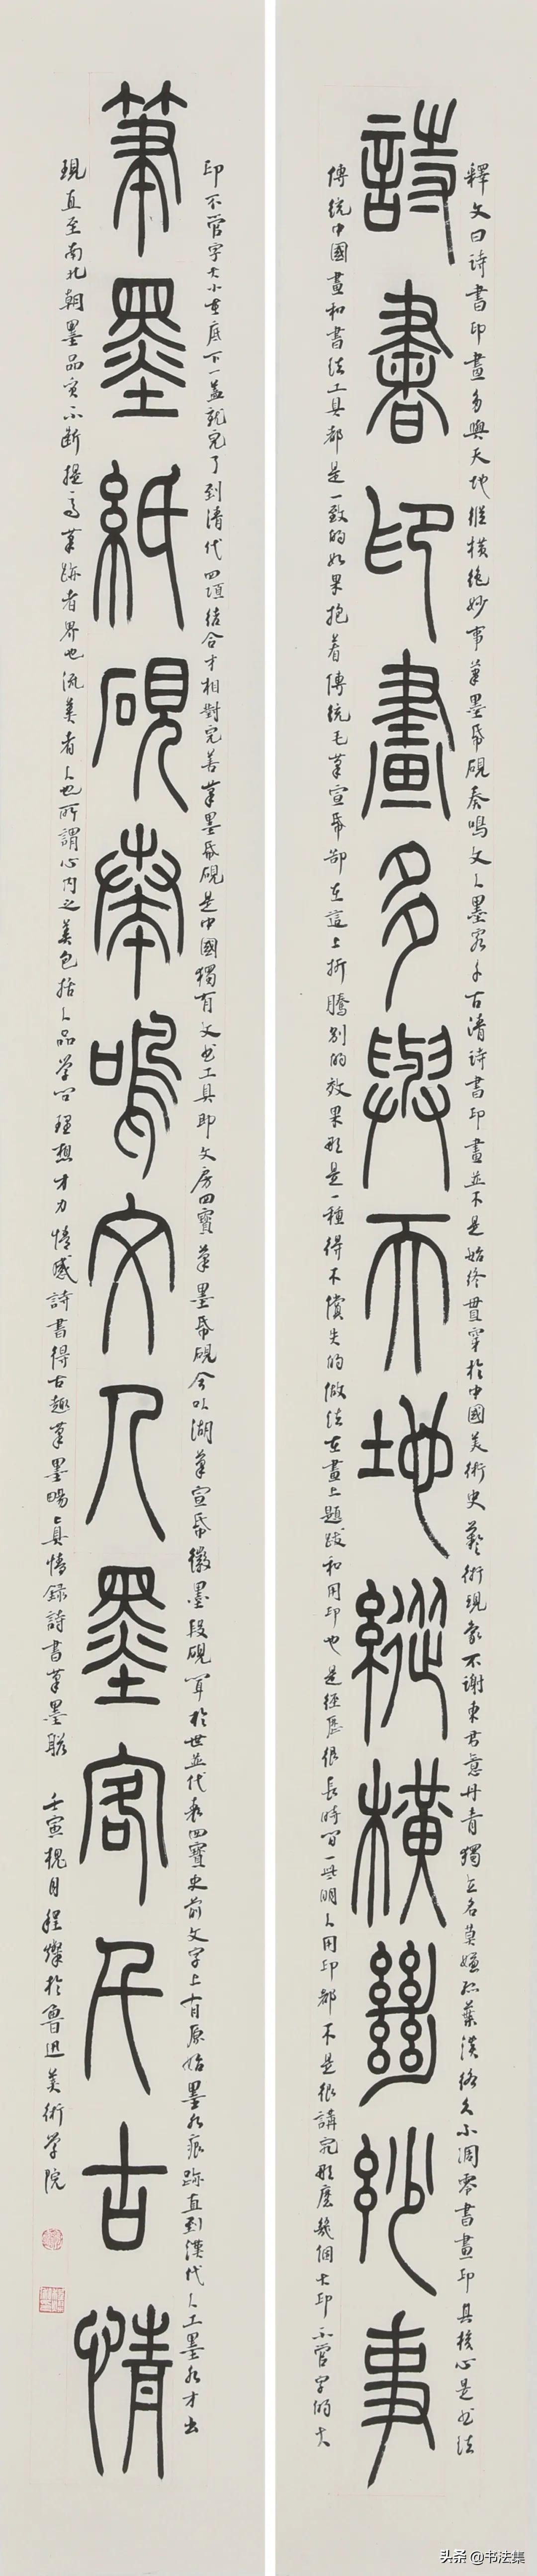 詩書印畫多與天地縱橫絕妙事
釋文曰詩書印畫多與天地縱橫絕妙事筆墨帋硯奏鳴文人墨客千古情詩書印畫並不是始終貫穿於中國美術史藝術現象不謝東君意丹青獨立名莫嫌孤葉淡終久不凋零書畫印其核心是書法
傳統中國畫和書法工具都是一致的如果抱着傳統毛筆宣帋卻在這上折騰別的效果那是一種得不償失的做法在畫上題跋和用印也是經歷很長時間一些明人用印都不是很講究那麼幾個大印不管字的大
筆墨紙硯奏鳴文人墨客千古情
印不管字大小在底下一蓋就完了到清代四項結合才相對完善筆墨帋硯是中國獨有文書工具即文房四寶筆墨帋硯今以湖筆宣帋徽墨段硯聞於世並代表四寶史前文字上有原始墨水痕跡直到漢代人工墨水才出
現直至南北朝墨品質不斷提高筆跡者界也流美者人也所謂心内之美包括人品学问理想才力情感詩書得古趣筆墨暢真情錄詩書筆墨聯
壬寅槐月程燦於魯迅美術学院
头条 @书法集